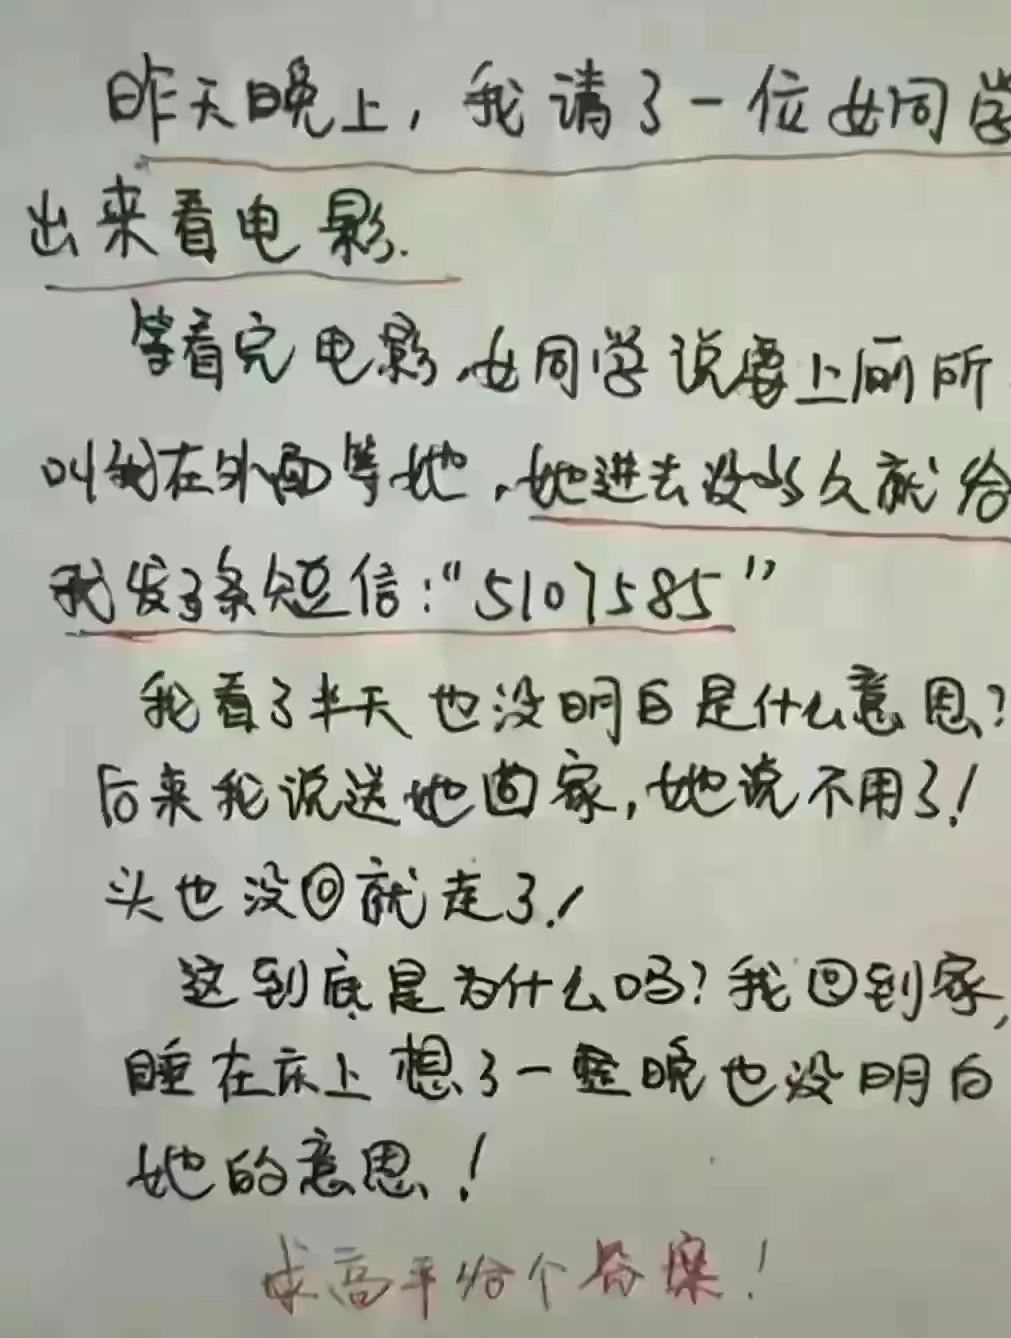 昨天晚上，我请了一位女同学
出来看电影.
等看完电影,女同学说要上厕所
叫我在外面等她，她进去没多久就给
我发了条短信：“5107585”
我看了半天也没明白是什么意思?
后来我说送她回家,她说不用了!
头也没回就走了!
这到底是为什么吗?我回到家,
睡在床上想了一整晚也没明白
她的意思!
求高手给个答案!